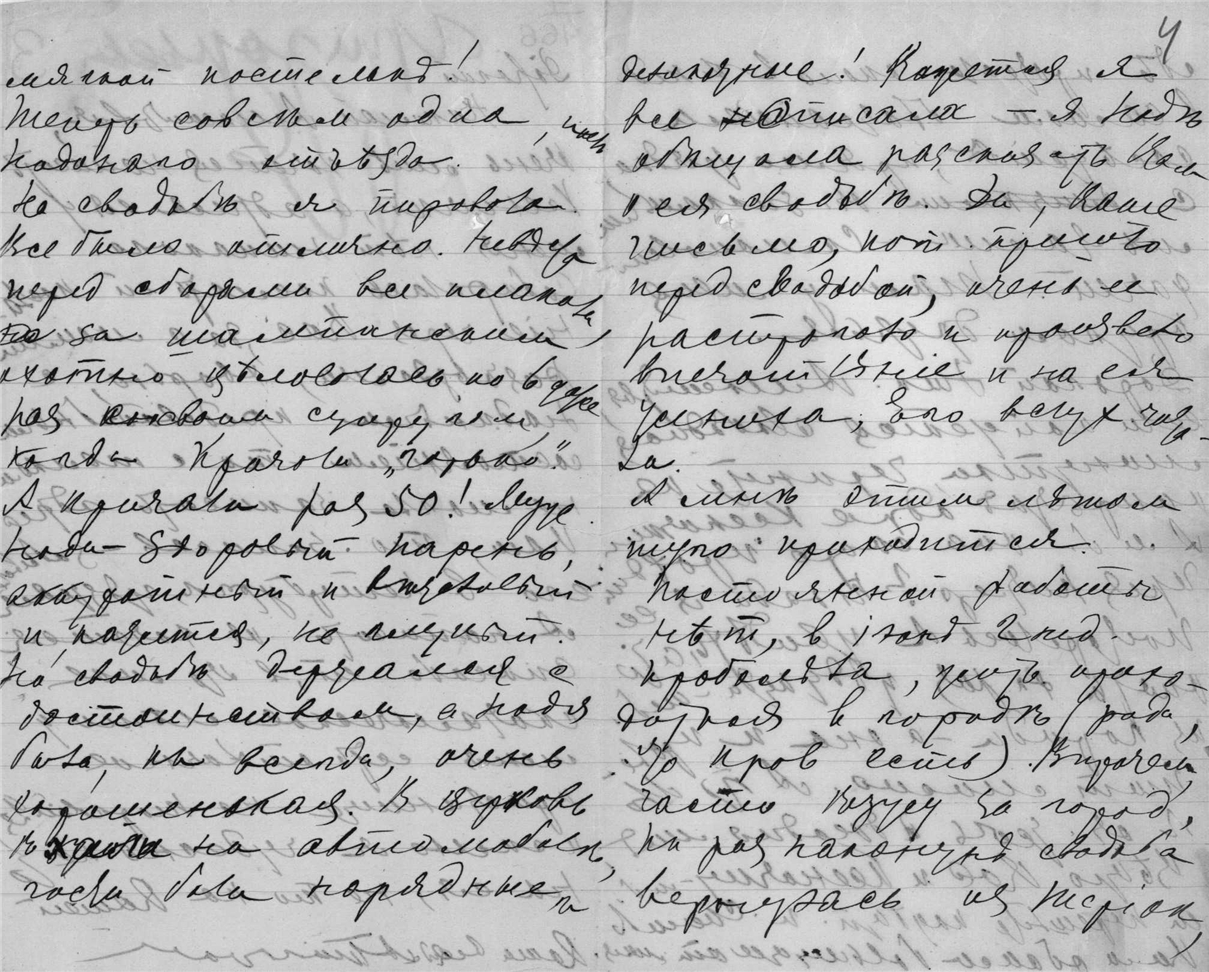 мягкой постелью!
Теперь совсѣмъ одна, послѣ
Надинаго отъѣзда.
На свадьбѣ я пировала.
Все было отлично. Невѣста
перед сборами все плакала,
но за шампанским
охотно цѣловалась по 6 даже
раз со своим супругом,
когда кричали „горько".
А кричали раз 50! Муж
Нади – здоровый парень,
аккуратный и
и, кажется, не глупый.
На свадьбѣ держался с
достоинством, а Надя
была, как всегда, очень
хорошенькая. В церковь
ѣхали на автомобилѣ,
гости были нарядные и
4
Кажется я
все написала – я Надѣ
обѣщала рассказать Вам
о ея свадьбѣ. Да, Ваше
письмо, кот. пришло
перед свадьбой, очень ее
растрогало и произвело
впечатлѣніе и на ея
жениха, Его вслух чита-
ла.
А мнѣ этим лѣтом
туго приходится.
Постоянной работы
нѣт, в іюнѣ 2 нед.
проболѣла, жить прихо-
дится в городѣ (рада,
что кров есть). Впрочем,
часто ѣзжу за город,
как раз наканунѣ свадьбы
вернулась из Теріок,